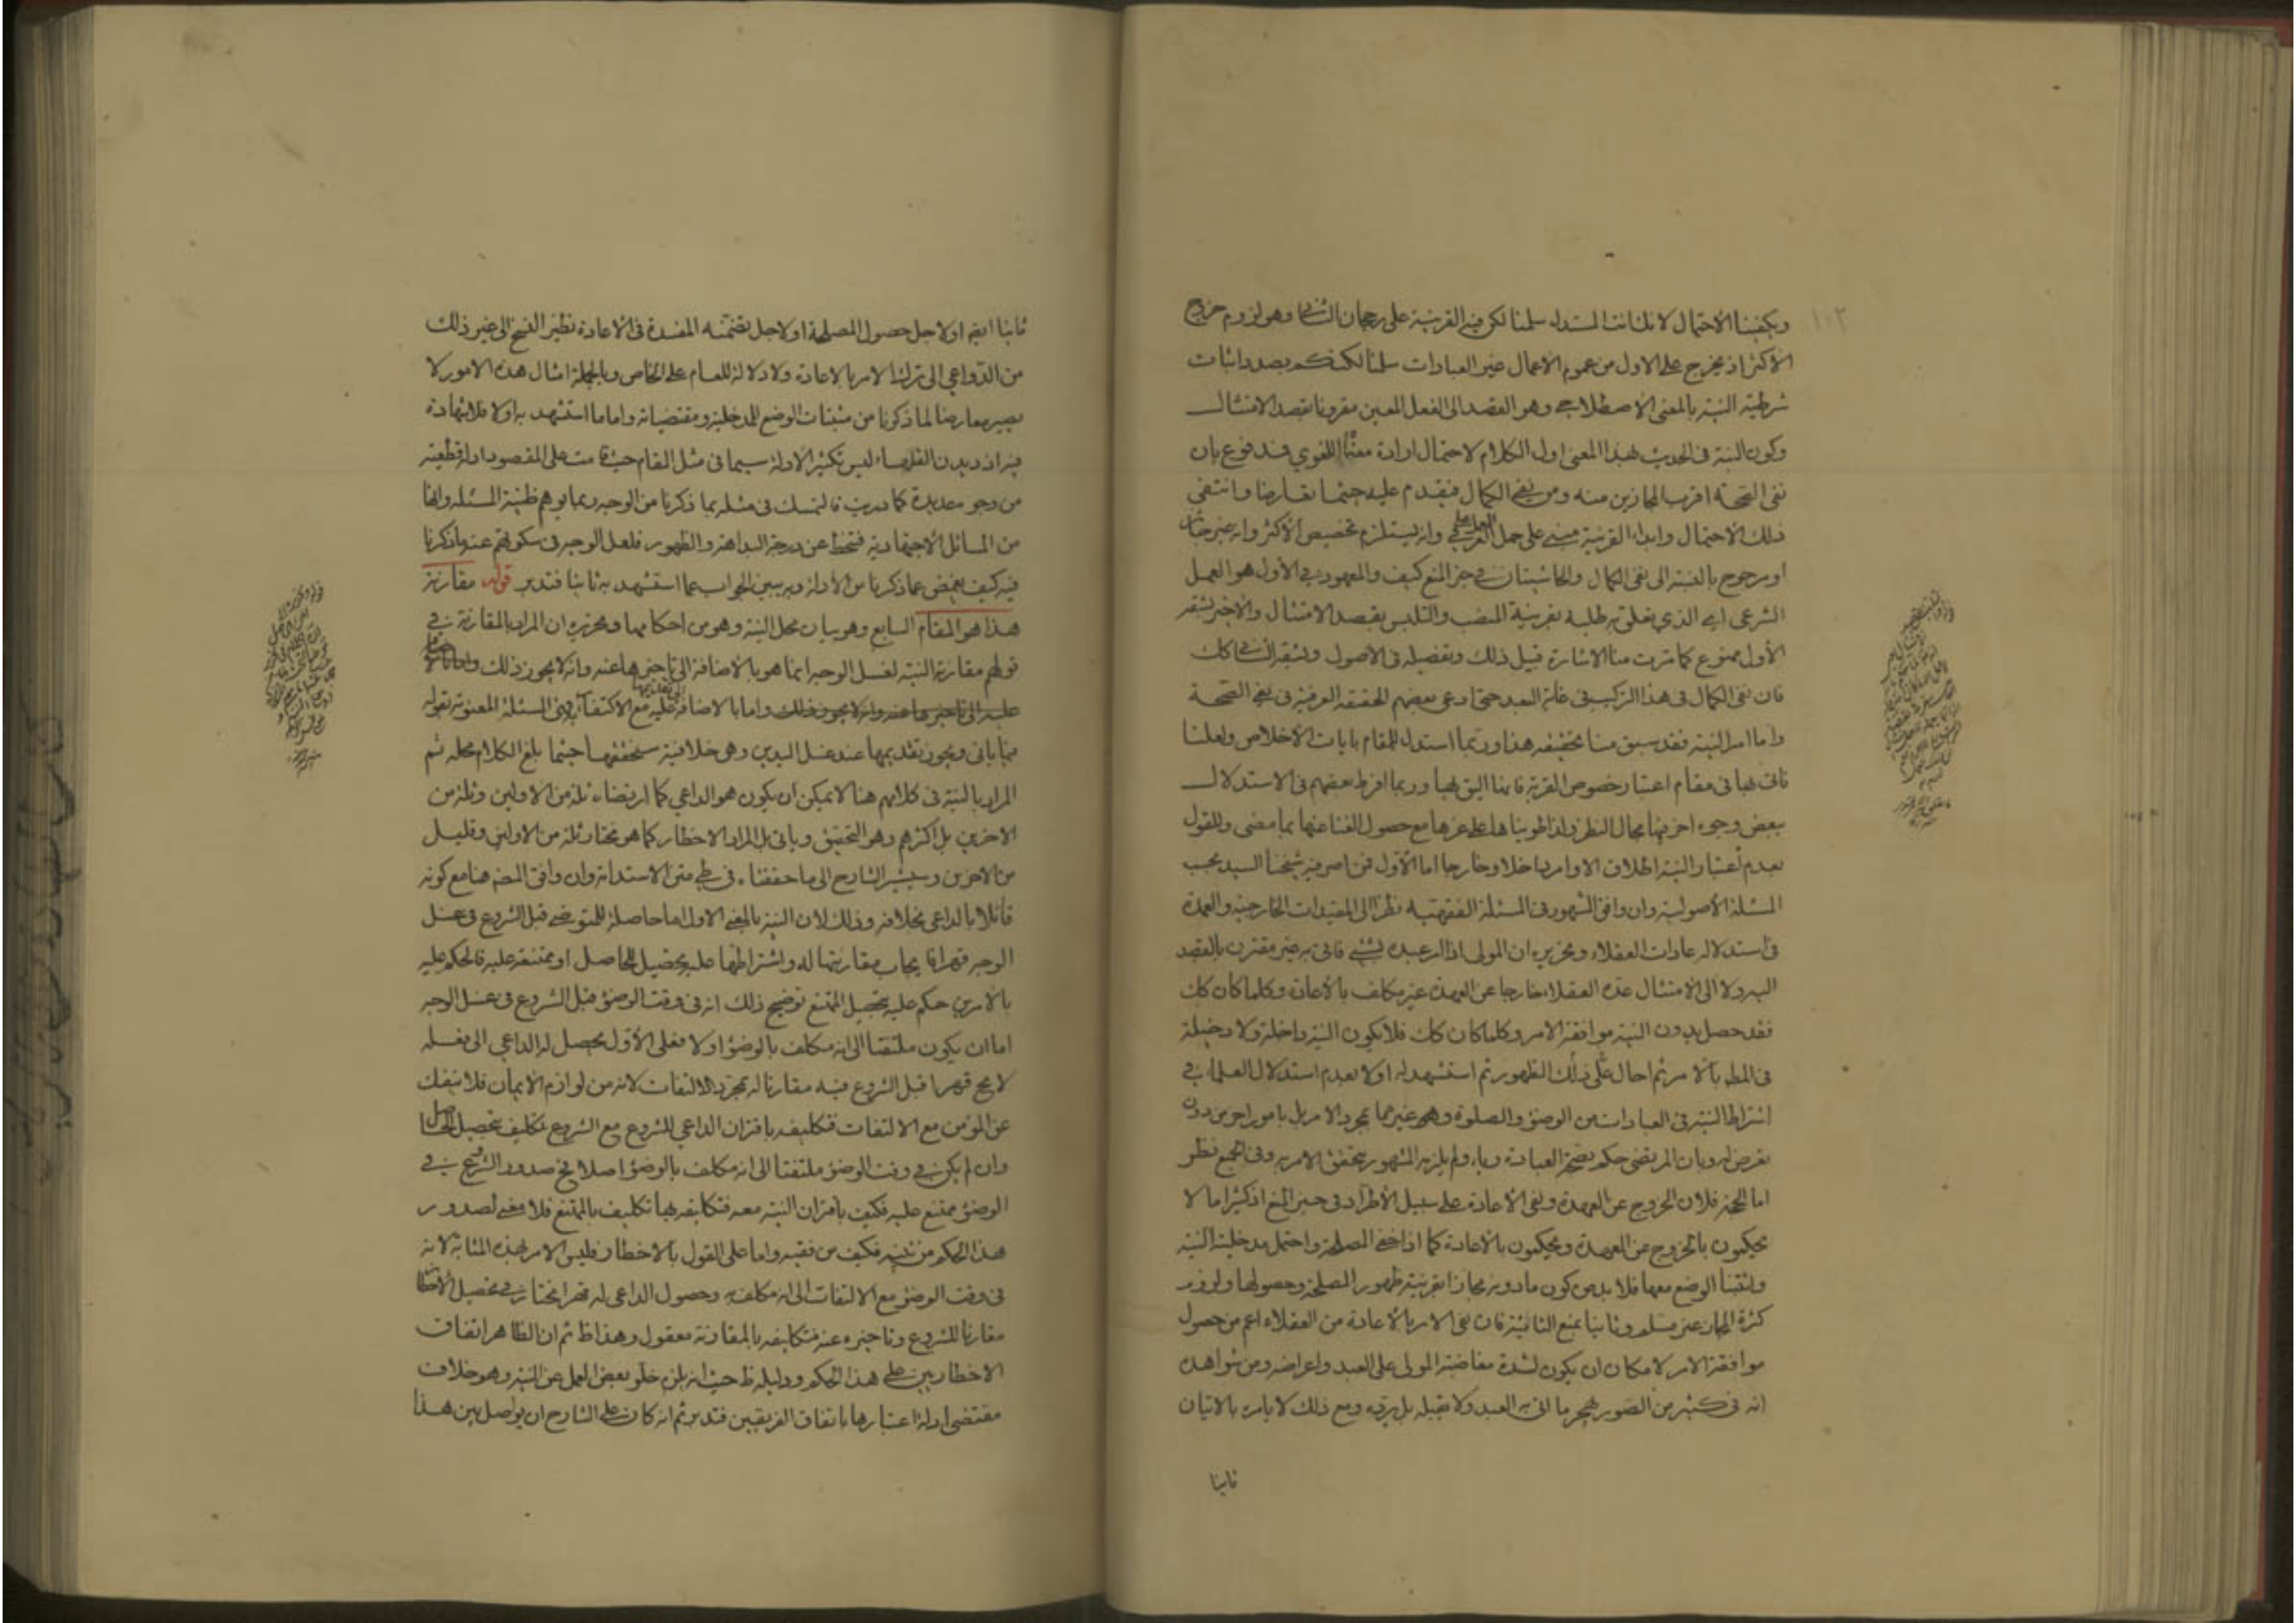 ويكفينا الاحتمال لانك انت المستدل سلمنا لكن في القرينة على رجحان الثاني وهو لزوم خروج
الاكثر اذ يخرج على الاول من عموم الاعمال غير العبادات سلمنا لكنكم بصدد اثبات
شرطية النية بالمعنى الاصطلاحي وهو القصد الى الفعل المعين مقرونا بقصد الامتثال
وكون النية في الحديث بهذا المعنى اول الكلام لاحتمال ارادة معناها اللغوي فمدفوع بان
نفي الصحة اقرب المجازين منه ومن نفي الكمال فيقدم عليه حيثما تعارضا وانتفى
ذلك الاحتمال وابداء القرينة مبني على حمل العمل على العرفي وانه يستلزم تخصيص الاكثر وانه غير جائز
او مرجوح بالنسبة الى نفي الكمال والحاشيتان في حيز المنع كيف والمعهود في الأول هو العمل
الشرعي اي الذي تعلق به طلبه بقرينة المنصب والتلبس بقصد الامتثال والاخير بشقه
الأول ممنوع كما مرت منا الاشارة قبيل ذلك وتفصيله في الاصول وبشقه الثاني كك
فان نفي الكمال في هذا التركيب في غاية البعد حتى ادعى بعضهم الحقيقة العرفية في نفي الصحة
واما امر النية فقد سبق منا تحقيقه هذا وربما استدل للمقام بايات الأخلاص ولعلنا
ناتي بها في مقام اعتبار خصوص القربة فانها اليق بها وربما افرط بعضهم في الاستدلال
ببعض وجوه اخر فيها مجال النظر ولذا طويناها على غرها مع حصول الغنا عنها بما مضى وللقول
بعدم اعتبار النية اطلاق الاوامر داخلا وخارجا اما الأول فمن اصر فيه شيخنا السيد بحسب
المسئلة الأصولية وان وافق المشهور في المسئلة الفقهية نظرا الى المقيدات الخارجية والعمدة
في استدلاله عادات العقلاء وتحريره ان المولى اذا امر عبده بشيء فاتى به غير مقترن بالقصد
اليه ولا الى الامتثال عده العقلاء خارجا عن العهدة غير مكلف بالأعادة وكلما كان كك
فقد حصل بدون النية موافقة الامر وكلما كان كك فلا يكون النية داخلة ولا دخيلة
في المط بالامر ثم احال على ذلك الظهور ثم استشهد له اولا بعدم استدلال العلماء في
اشتراط النية في العبادات من الوضوء والصلوة وغيرهما بمجرد الامر بل بامور اخر من دون
تعرض له وبان المرتضى حكم بصحة العبادة رياء ولم يلزمه المشهور بتحقق الامر به وفي الجميع نظر
اما الحجة فلان الخروج عن العهدة ونفي الأعادة على سبيل الأطراد في حيز المنع اذ كثيرا ما لا
يحكمون بالخروج عن العهدة ويحكمون بالأعادة كما اذا خفي المصلحة واحتمل مدخلية النية
ولثبتنا الوضع معها فلا بد من كون ما دونه مجازا بقرينة ظهور المصلحة وحصولها ولزوم
كثرة المجاز غير مسلم وثانيا بمنع الثانية فان نفي الامر بالأعادة من العقلاء اعم من حصول
موافقة الامر لامكان ان يكون لشدة مغاضبة المولى على العبد واعراضه ومن شواهده
انه في كثير من الصور يهجر ما اتى به العبد ولا يقبله بل يرده ومع ذلك لا يامره بالاتيان
ثانيا
ثانيا ايضا او لاجل حصول المصلحة او لاجل تضمنه المفسدة في الاعادة نظير الفسخ الى غير ذلك
من الدواعي الى ترك الامر بالاعادة ولا دلالة للعام على الخاص وبالجملة امثال هذه الامور لا
يصير معارضا لما ذكرنا من مثبتات الوضع للمدخلية ومقتضياته واما ما استشهد به اولا فلا شهادة
فيه اذ ديدن الفقهاء ليس تكثير الأدلة سيما في مثل المقام حيث قامت على المقصود ادلة قطعية
من وجوه عديدة كما دريت فالتمسك في مثله بما ذكرنا من الوجه ربما يوهم ظنية المسئلة وانها
من المسائل الأجتهادية فتنحط عن درجة البداهة والظهور فلعل الوجه في سكوتهم عنه ما ذكرنا
فيه كيف يغمض عما ذكرنا من الأدلة وبه يبين الجواب عما استشهد به ثانيا فتدبر قوله مقارنة
هذا هو المقام السابع وهو بيان محل النية وهو من احكامها وتحريره ان المراد بالمقارنة في
قولهم مقارنة النية لغسل الوجه انما هو بالأضافة الى تاخيرها عنه وانه لا يجوز ذلك
عليه الى تاخيرها عنه وانه لا يجوز ذلك واما بالاضافة الى تقديمها عليه مع الاكتفاء به في المسئلة المعنونة بقوله
فيما ياتي ويجوز تقديمها عند غسل اليدين وهي خلافية ستحققها حيثما بلغ الكلام محله ثم
المراد بالنية في كلامهم هنا لا يمكن ان يكون هو الداعي كما ارتضاه ثلة من الاولين وثلة من
الاخرين بل اكثرهم وهو التحقيق وياتي بل المراد الاخطار كما هو مختار ثلة من الاولين وقليل
من الاخرين وسيشير الشارح الى ما حققناه في طي متن الاستدامة وان وافق المصنف هنا مع كونه
قائلا بالداعي بخلافه وذلك لان النية بالمعنى الاول اما حاصلة للمتوضي قبل الشروع في غسل
الوجه قهرا فايجاب مقارنتها له واشتراطها عليه تحصيل للحاصل او ممتنعة عليه فالحكم عليه
بالامرين حكم عليه بتحصيل الممتنع توضيح ذلك انه في وقت الوضوء قبل الشروع في غسل الوجه
اما ان يكون ملتفتا الى انه مكلف بالوضوء اولا فعلى الأول يحصل له الداعي الى فعله
لا مح قهرا قبل الشروع فيه مقارنا له بمجرد الالتفات لانه من لوازم الايمان فلا ينفك
عن المؤمن مع الالتفات فتكليفه باقتران الداعي للشروع مع الشروع تكليف بتحصيل الحاصل
وان لم يكن في وقت الوضوء ملتفتا الى انه مكلف بالوضوء اصلا فح صدور الشروع في
الوضوء ممتنع عليه فكيف باقتران النية معه فتكليفه بها تكليف بالممتنع فلا معنى لصدور
هذا الحكم من فكيف من فقيه واما على القول بالاخطار فليس الامر بهذه المثابة لانه
في وقت الوضوء مع الالتفات الى انه مكلف به وحصول الداعي له قهرا مختار في تحصيل الأخطار
مقارنا للشروع وتاخيره عنه فتكليفه بالمقارنة معقول وهذا ظ ثم ان الظاهر اتفاق
الاخطاريين على هذا الحكم ودليله ظ حيث انه يلزم خلو بعض العمل عن النية وهو خلاف
مقتضى ادلة اعتبارها باتفاق الفريقين فتدبر ثم انه كان على الشارح ان يواصل بين هذا